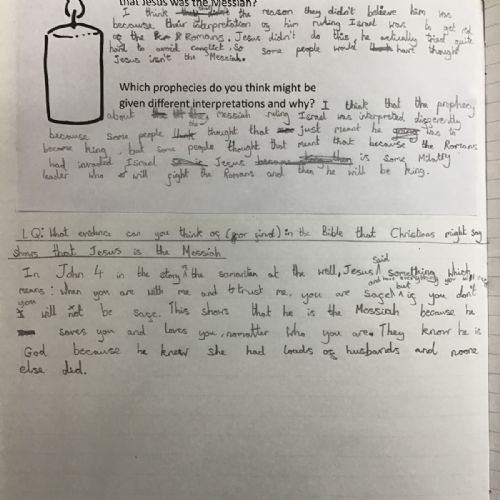 that Jesus was the Messiah?
I think the reason they didn't believe him was
because their interpretation of him ruling Israel was to get rid
of the Romans. Jesus didn't do this, he actually tried quite
hard to avoid conflict. So some people would have thought
Jesus isn't the Messiah.
Which prophecies do you think might be
given different interpretations and why? I think that the prophecy
about the messiah ruling Israel was interpreted differently
because some people thought that just meant he was to
become king, but some people thought that meant that because the Romans
had invaded Israel Jesus is some Milatry
leader who will fight the Romans and then he will be king.
LQ: What evidence can you think of (or find) in the Bible that Christians might say
shows that Jesus is the Messiah
In John 4 in the story the samaritan at the well, Jesus said something which
means: when you are with me and trust me, you are safe but if you don't
you will not be safe. This shows that he is the Messiah because he
saves you and loves you, nomatter who you are. They know he is
God because he knew she had loads of husbands and noone
else did.